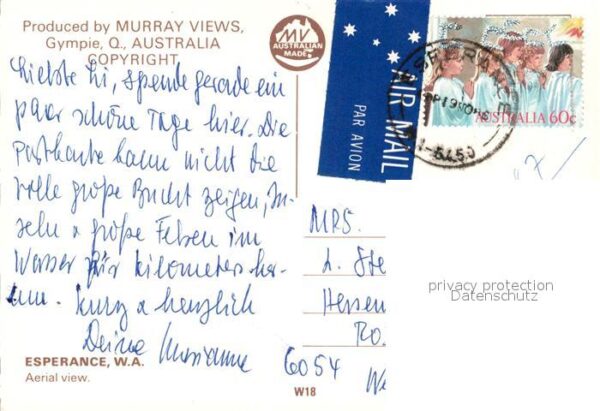 Produced by MURRAY VIEWS,
Gympie, Q., AUSTRALIA
COPYRIGHT
MV
AUSTRALIAN
MADE
Liebste Li, spende gerade ein
paar schöne Tage hier. Die
Postkarte kann nicht die
volle große Bucht zeigen, In-
seln & große Felsen im
Wasser für Kilometer her-
um. Kurz & herzlich
Deine Marianne
ESPERANCE, W.A.
Aerial view.
W18
AIR MAIL
PAR AVION
ESPERANCE
6450
AUSTRALIA 60c
MRS.
L. Ste
Hessen
Ro.
6054
We
privacy protection
Datenschutz